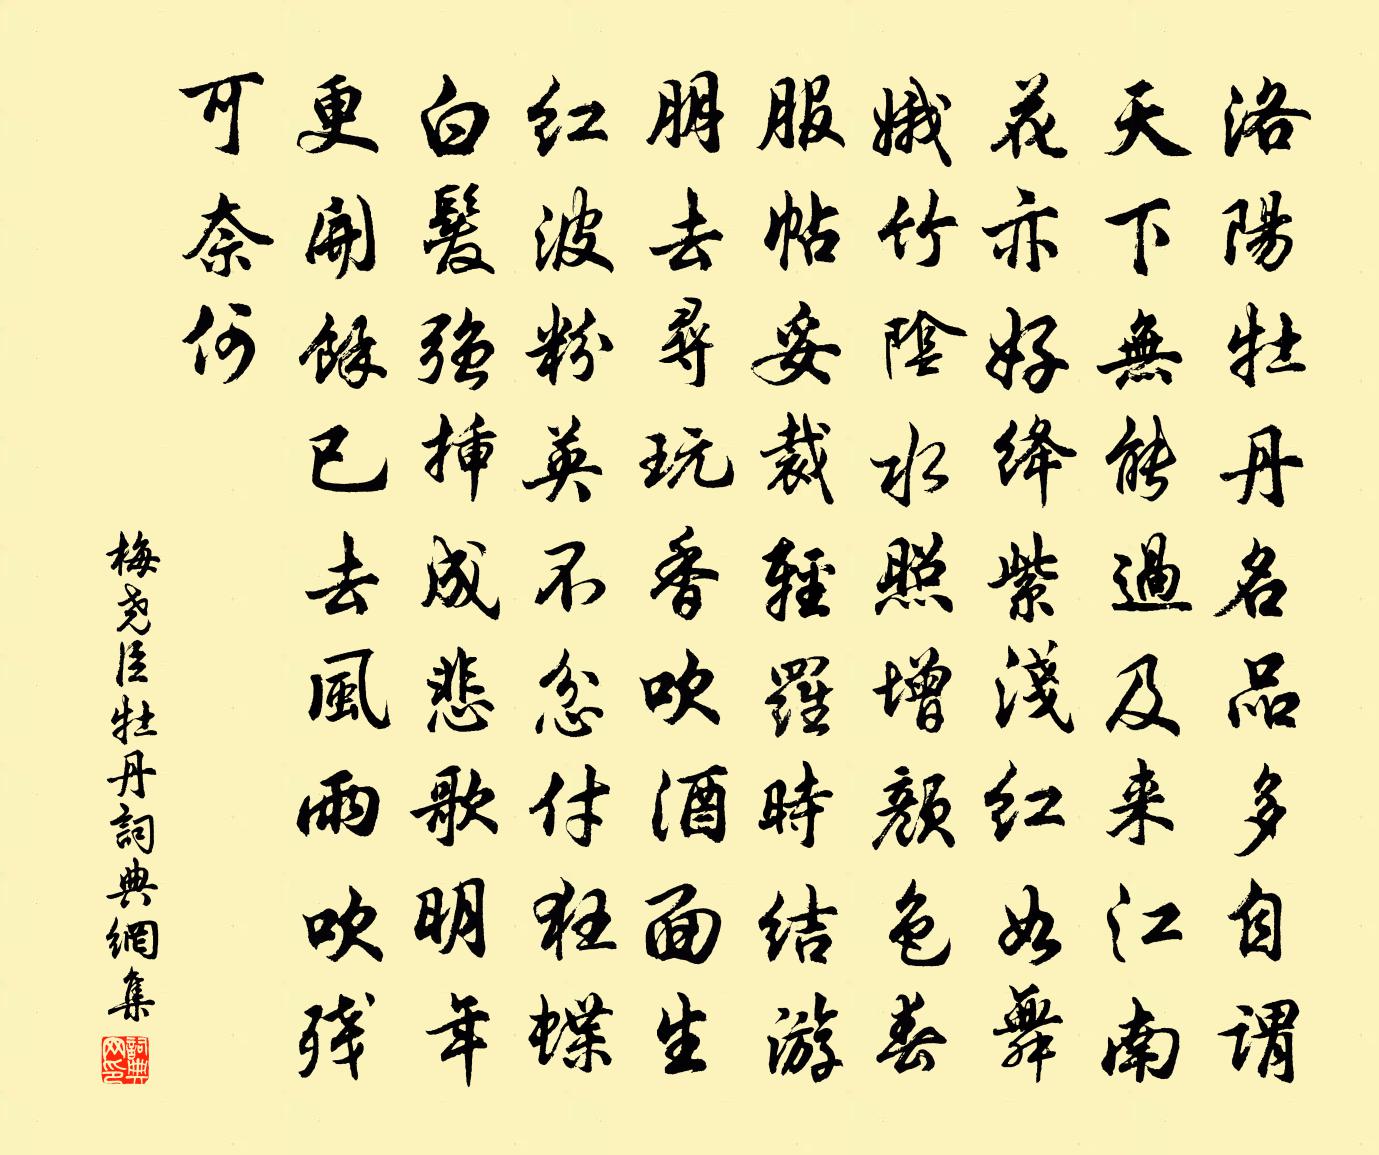 洛陽牡丹名品多自謂
天下無能過及来江南
花亦好绛紫淺红如舞
娥竹陰水照增顏色春
服帖妥裁輕羅時結游
朋去尋玩香吹酒面生
红波粉英不忿付狂蝶
白髮强插成悲歌明年
更開餘已去風雨吹残
可奈何
梅尧臣牡丹詞典網集
詞典网印